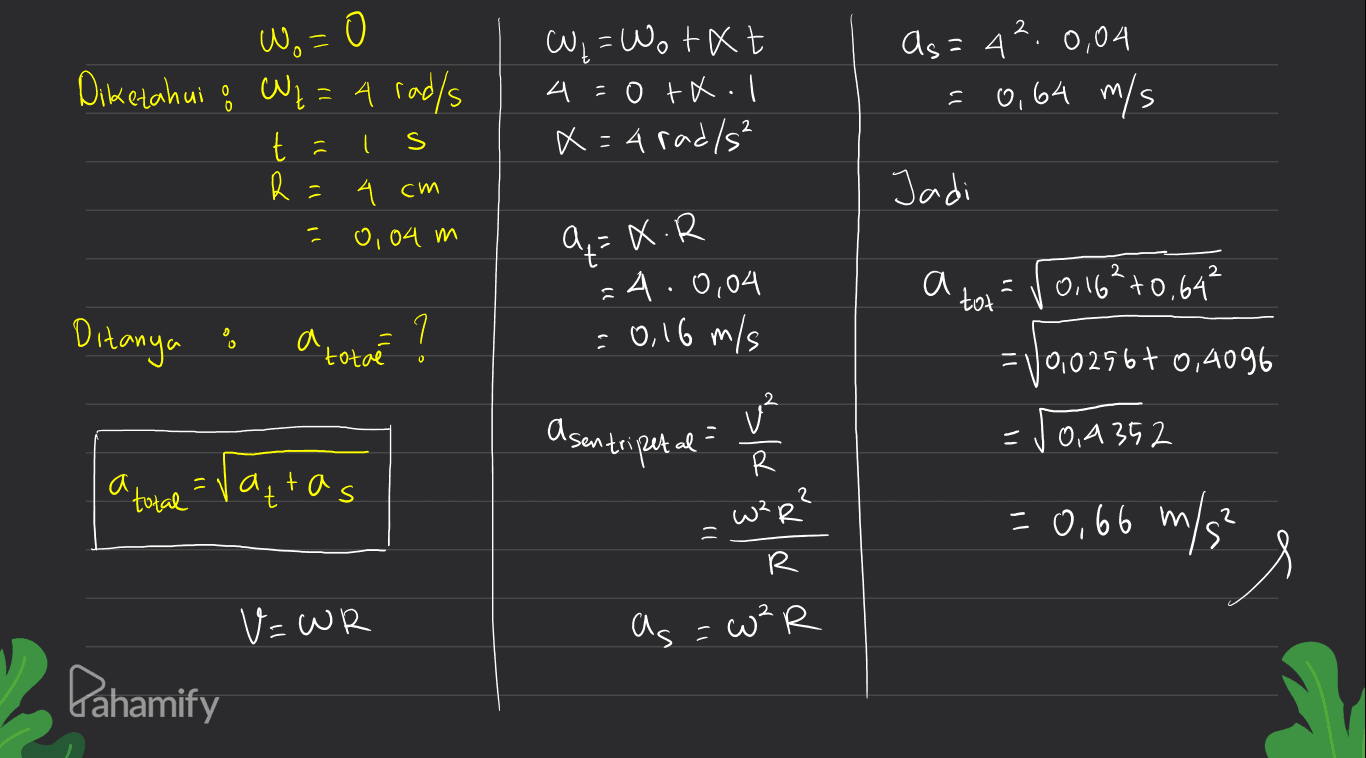 ω₀ = 0
Diketahui : ωₜ = 4 rad/s
t = 1 s
R = 4 cm
= 0,04 m
Ditanya : a total = ?
a total = √aₜ + aₛ
V = ωR
ωₜ = ω₀ + α t
4 = 0 + α . 1
α = 4 rad/s²
aₜ = α . R
= 4 . 0,04
= 0,16 m/s
a sentripetal = V²/R
= ω²R²/R
aₛ = ω² R
aₛ = 4² . 0,04
= 0,64 m/s
Jadi
a tot = √0,16² + 0,64²
= √0,0256 + 0,4096
= √0,4352
= 0,66 m/s²
Pahamify